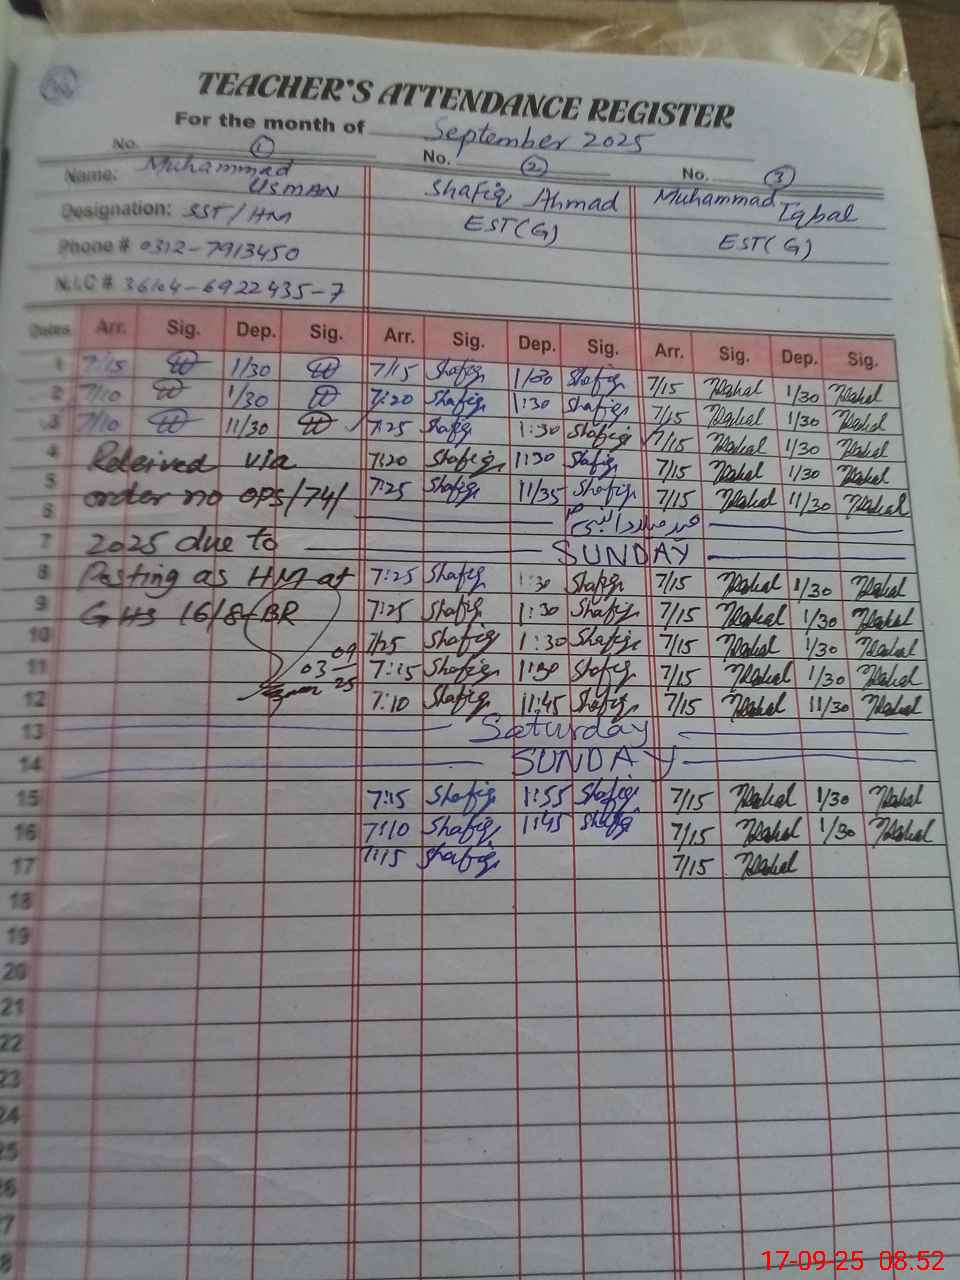 TEACHER'S ATTENDANCE REGISTER
For the month of September 2025
No. 1 No. 2 No. 3
Name: Muhammad USMAN Shafiq Ahmad Muhammad Iqbal
Designation: SST/HM EST(G) EST(G)
Phone # 0312-7913450
N.I.C # 36104-6922435-7
Dates Arr. Sig. Dep. Sig. Arr. Sig. Dep. Sig. Arr. Sig. Dep. Sig.
1 7/15 1/30 7/15 Shafiq 1/30 Shafiq 7/15 1/30
2 7/10 1/30 7:20 Shafiq 1:30 Shafiq 7/15 1/30
3 7/10 11/30 7:25 Shafiq 1:30 Shafiq 7/15 1/30
4 Releived via 7:20 Shafiq 1:30 Shafiq 7/15 1/30
5 order no OPS/74/ 7:25 Shafiq 11/35 Shafiq 7/15 11/30
6 عید میلاد النبیؐ
7 2025 due to SUNDAY
8 Posting as HM at 7:25 Shafiq 1:30 Shafiq 7/15 1/30
9 GHS 16/8-BR 7:25 Shafiq 1:30 Shafiq 7/15 1/30
10 7/25 Shafiq 1:30 Shafiq 7/15 1/30
11 03-09-25 7:15 Shafiq Shafiq 7/15 1/30
12 7:10 Shafiq 11:45 Shafiq 7/15 11/30
13 Saturday
14 SUNDAY
15 7:15 Shafiq 1:55 Shafiq 7/15 1/30
16 7:10 Shafiq 1:45 Shafiq 7/15 1/30
17 7:15 Shafiq 7/15
18
19
20
21
22
23
24
25
26
27
28
17-09-25 08.52